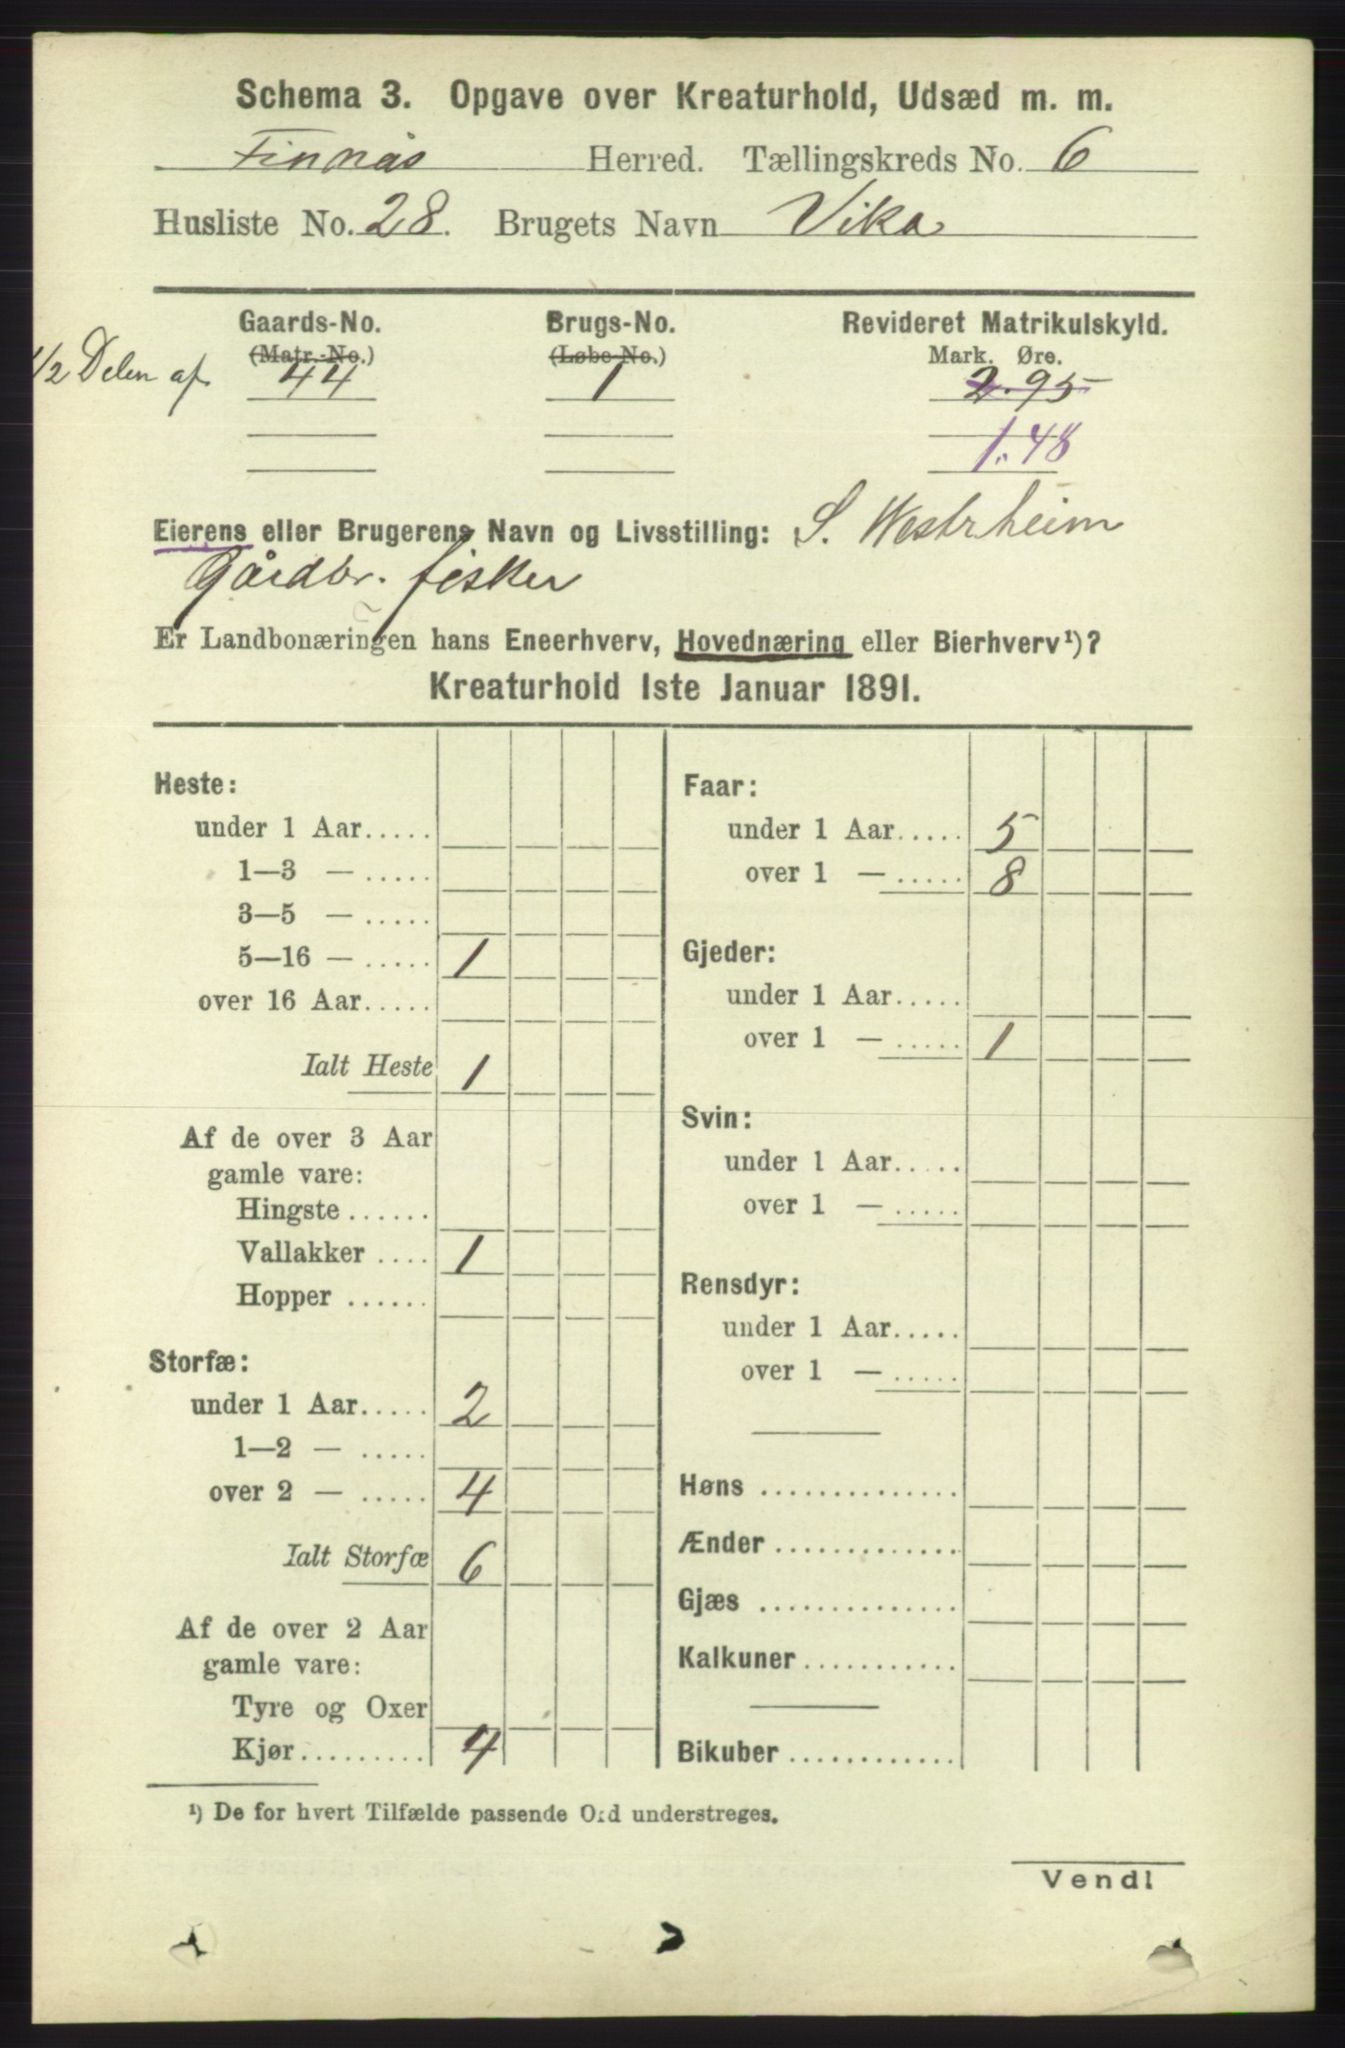 Schema 3. Opgave over Kreaturhold, Udsæd m. m.
Finnås Herred. Tællingskreds No. 6
Husliste No. 28. Brugets Navn Vika
Gaards-No. Brugs-No. Revideret Matrikulskyld.
(Matr.-No.) (Løbe-No.) Mark. Øre.
1/2 Delen af 44 1 2.95
1.48
Eierens eller Brugerens Navn og Livsstilling: S. Westrheim
Gårdbr. fisker
Er Landbonæringen hans Eneerhverv, Hovednæring eller Bierhverv¹)?
Kreaturhold 1ste Januar 1891.
Heste:
under 1 Aar.....
1—3 — .....
3—5 — .....
5—16 — ..... 1
over 16 Aar.....
Ialt Heste 1
Af de over 3 Aar
gamle vare:
Hingste ......
Vallakker .... 1
Hopper ......
Storfæ:
under 1 Aar..... 2
1—2 — .....
over 2 — ..... 4
Ialt Storfæ 6
Af de over 2 Aar
gamle vare:
Tyre og Oxer
Kjør......... 4
Faar:
under 1 Aar..... 5
over 1 — ..... 8
Gjeder:
under 1 Aar.....
over 1 — ..... 1
Svin:
under 1 Aar.....
over 1 — .....
Rensdyr:
under 1 Aar.....
over 1 — .....
Høns ..............
Ænder .............
Gjæs ..............
Kalkuner ...........
Bikuber ............
¹) De for hvert Tilfælde passende Ord understreges.
Vend!